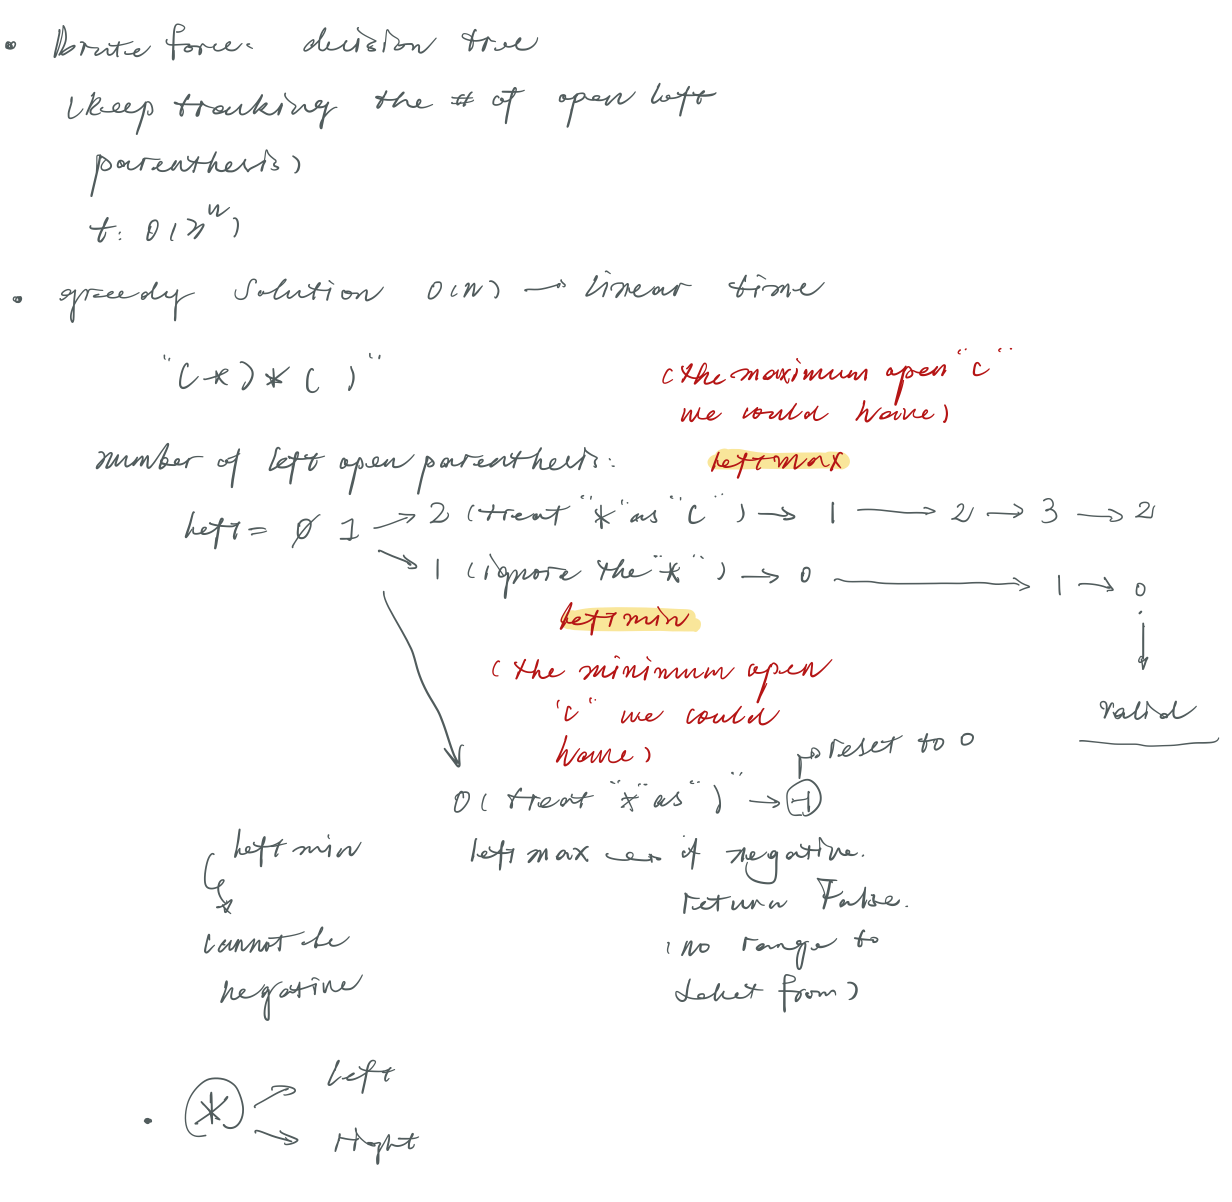 • Brute force. decision tree
(keep tracking the # of open left
parenthesis)
t: O(3^N)
• greedy solution O(N) → linear time
"(*)*()"
(the maximum open "("
we could have)
number of left open parenthesis:
leftmax
left = 0 1 → 2 (treat "*" as "(") → 1 → 2 → 3 → 2
→ 1 (ignore the "*") → 0 → 1 → 0
leftmin
(the minimum open
"(" we could
have)
valid
reset to 0
0 (treat "*" as ")" → -1
leftmin
cannot be
negative
leftmax if negative.
return False.
(no range to
select from)
• * → left
→ right